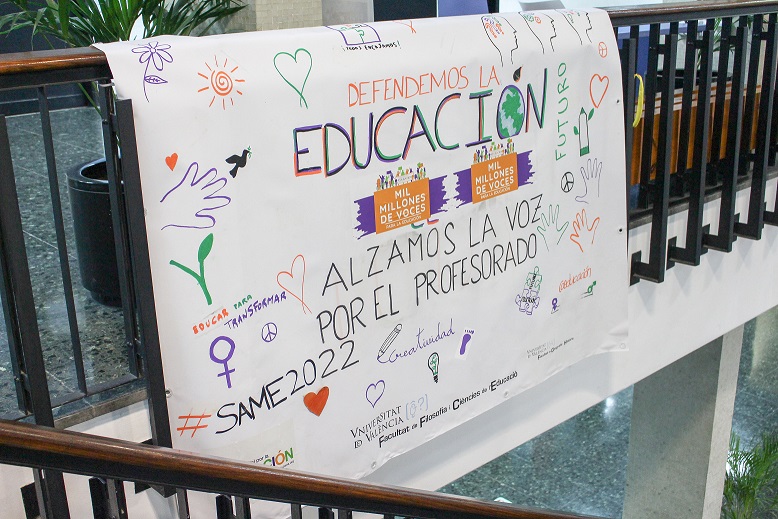 ¡TODOS ENCAJAMOS!
DEFENDEMOS LA
EDUCACIÓN
FUTURO
MIL
MILLONES
DE VOCES
PARA LA EDUCACIÓN
MIL
MILLONES
DE VOCES
PARA LA EDUCACIÓN
ALZAMOS LA VOZ
POR EL PROFESORADO
EDUCAR PARA
TRANSFORMAR
@educación
Creatividad
#SAME2022
VNIVERSITAT
ID VALÈNCIA
Facultat de Filosofia i Ciències de l'Educació